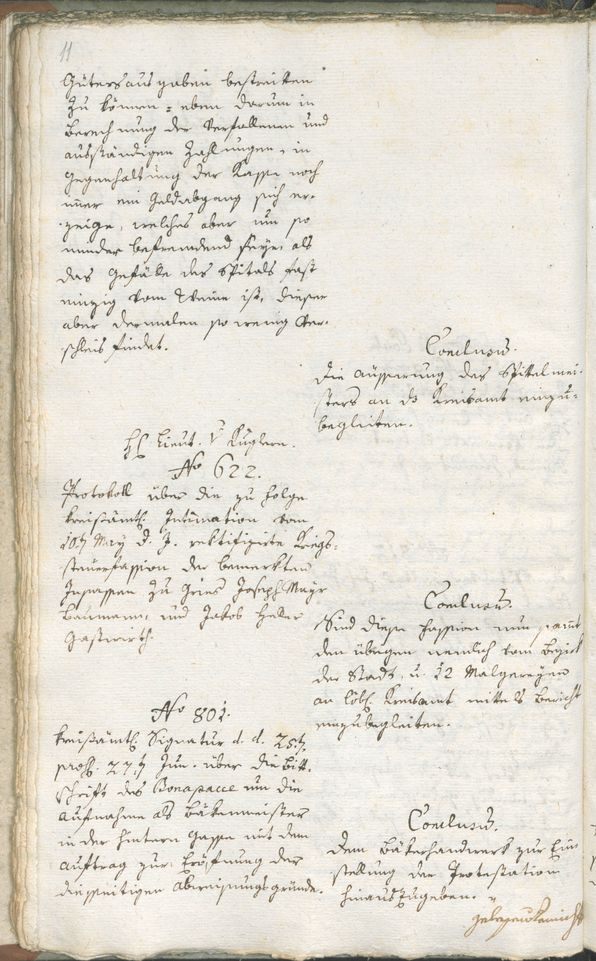 11
Gütersausgaben bestreitten
zu können, eben darum in
Berechnung der Verfallenen und
ausständigen Zahlungen, in
Gegenhaltung der Kasse noch
immer ein Geldabgang sich er-
zeige, welches aber um so
minder befremdend seye, als
das Gefälle des Spitals fast
einzig vom Weine ist, dieser
aber dermalen so wenig Ver-
schleis findet.
Conclusum.
Die Äusserung des Spitalmei-
sters an das Kreisamt einzu-
begleiten.
H. Lieut. v Kuglern.
No 622.
Protokoll über die zu Folge
kreisämtl. Intimation vom
10t May d. J. rektifizirte Kriegs-
steuerfassion der bemerkten
Insassen zu Gries Joseph Mayr
Baumann, und Jakob Heller
Gastwirth.
Conclusum.
Sind diese Fassion nun samt
den übrigen nemlich vom Bezirk
der Stadt, u. 12 Malgereyen
an löbl. Kreisamt mittels Bericht
einzubegleiten.
No 801.
Kreisämtl. Signatur d. d. 25t
pross. 27t Jun. über die Bitt-
schrift des Bonapace um die
Aufnahme als Bäkenmeister
in der hintern Gasse mit dem
Auftrag zur Eröfnung der
diesseitigen Abweisungsgründe.
Conclusum.
Dem Bäkerhandwerk zur Ein-
stellung der Protestation
hinauszugeben.